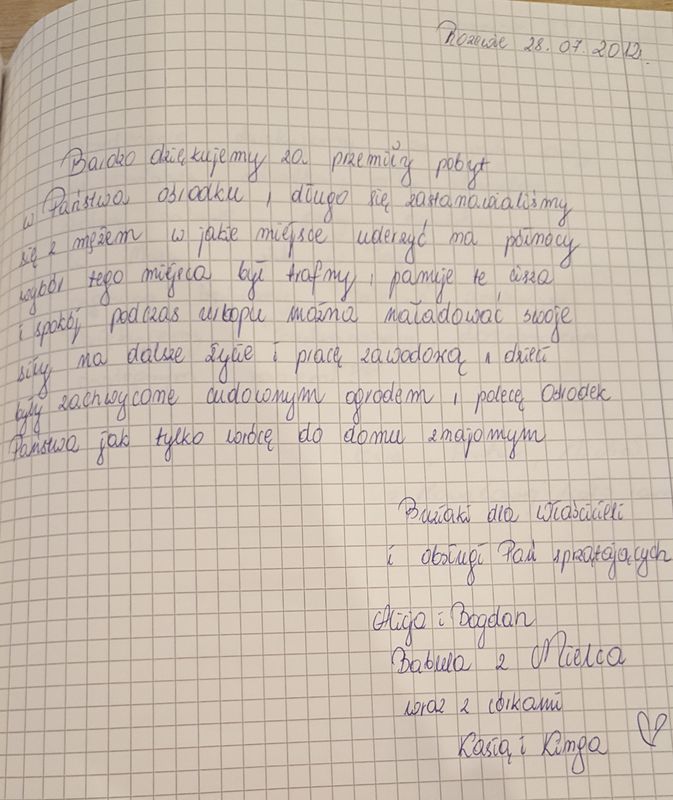 Rozewie 28.07.2012r.
Bardzo dziękujemy za przemiły pobyt
w Państwa osrodku, długo się zastanawialiśmy
się z mężem w jakie miejsce uderzyć na północy
wybór tego miejsca był trafny, panuje te cisza
i spokój podczas urlopu można naładować swoje
siły na dalsze życie i pracę zawodową, dzieci
były zachwycone cudownym ogrodem, polecę Osrodek
Państwa jak tylko wrócę do domu znajomym
Buziaki dla właścicieli
i obsługi Pań sprzątających
Alicja i Bogdan
Babula z Mielca
wraz z córkami
Kasią i Kinga